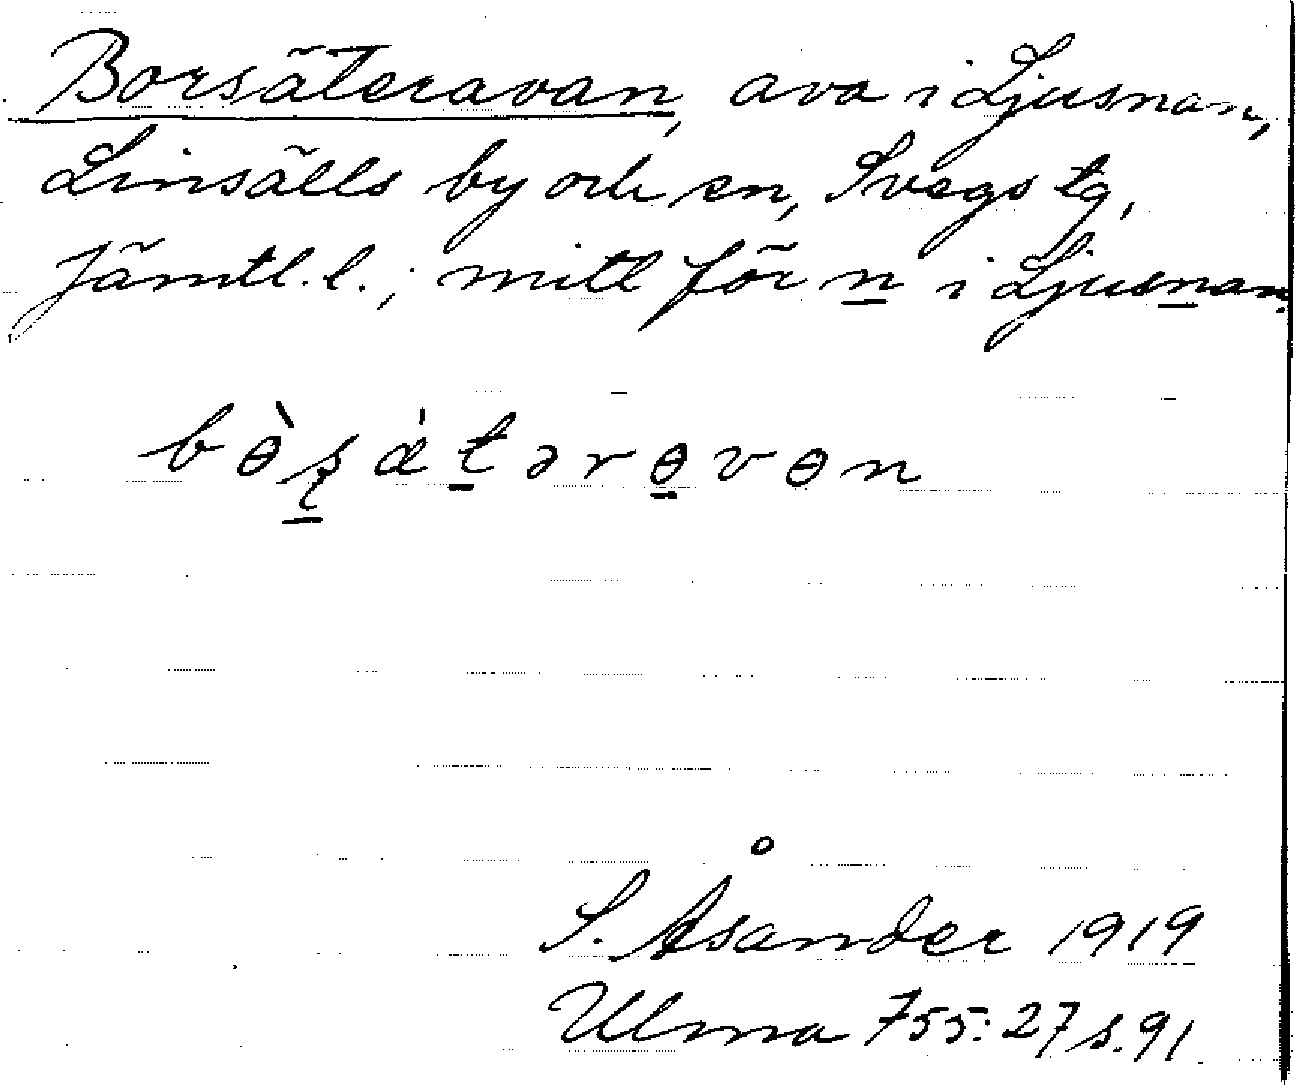 Borsäteravan, ava i Ljusnan,
Linsälls by och sn, Svegs tg,
Jämtl. l.; mitt för n i Ljusnan.
bɵ̀ʂàtərɵvɵn
S. Åsander 1919
Ulma 755:27 s. 91.